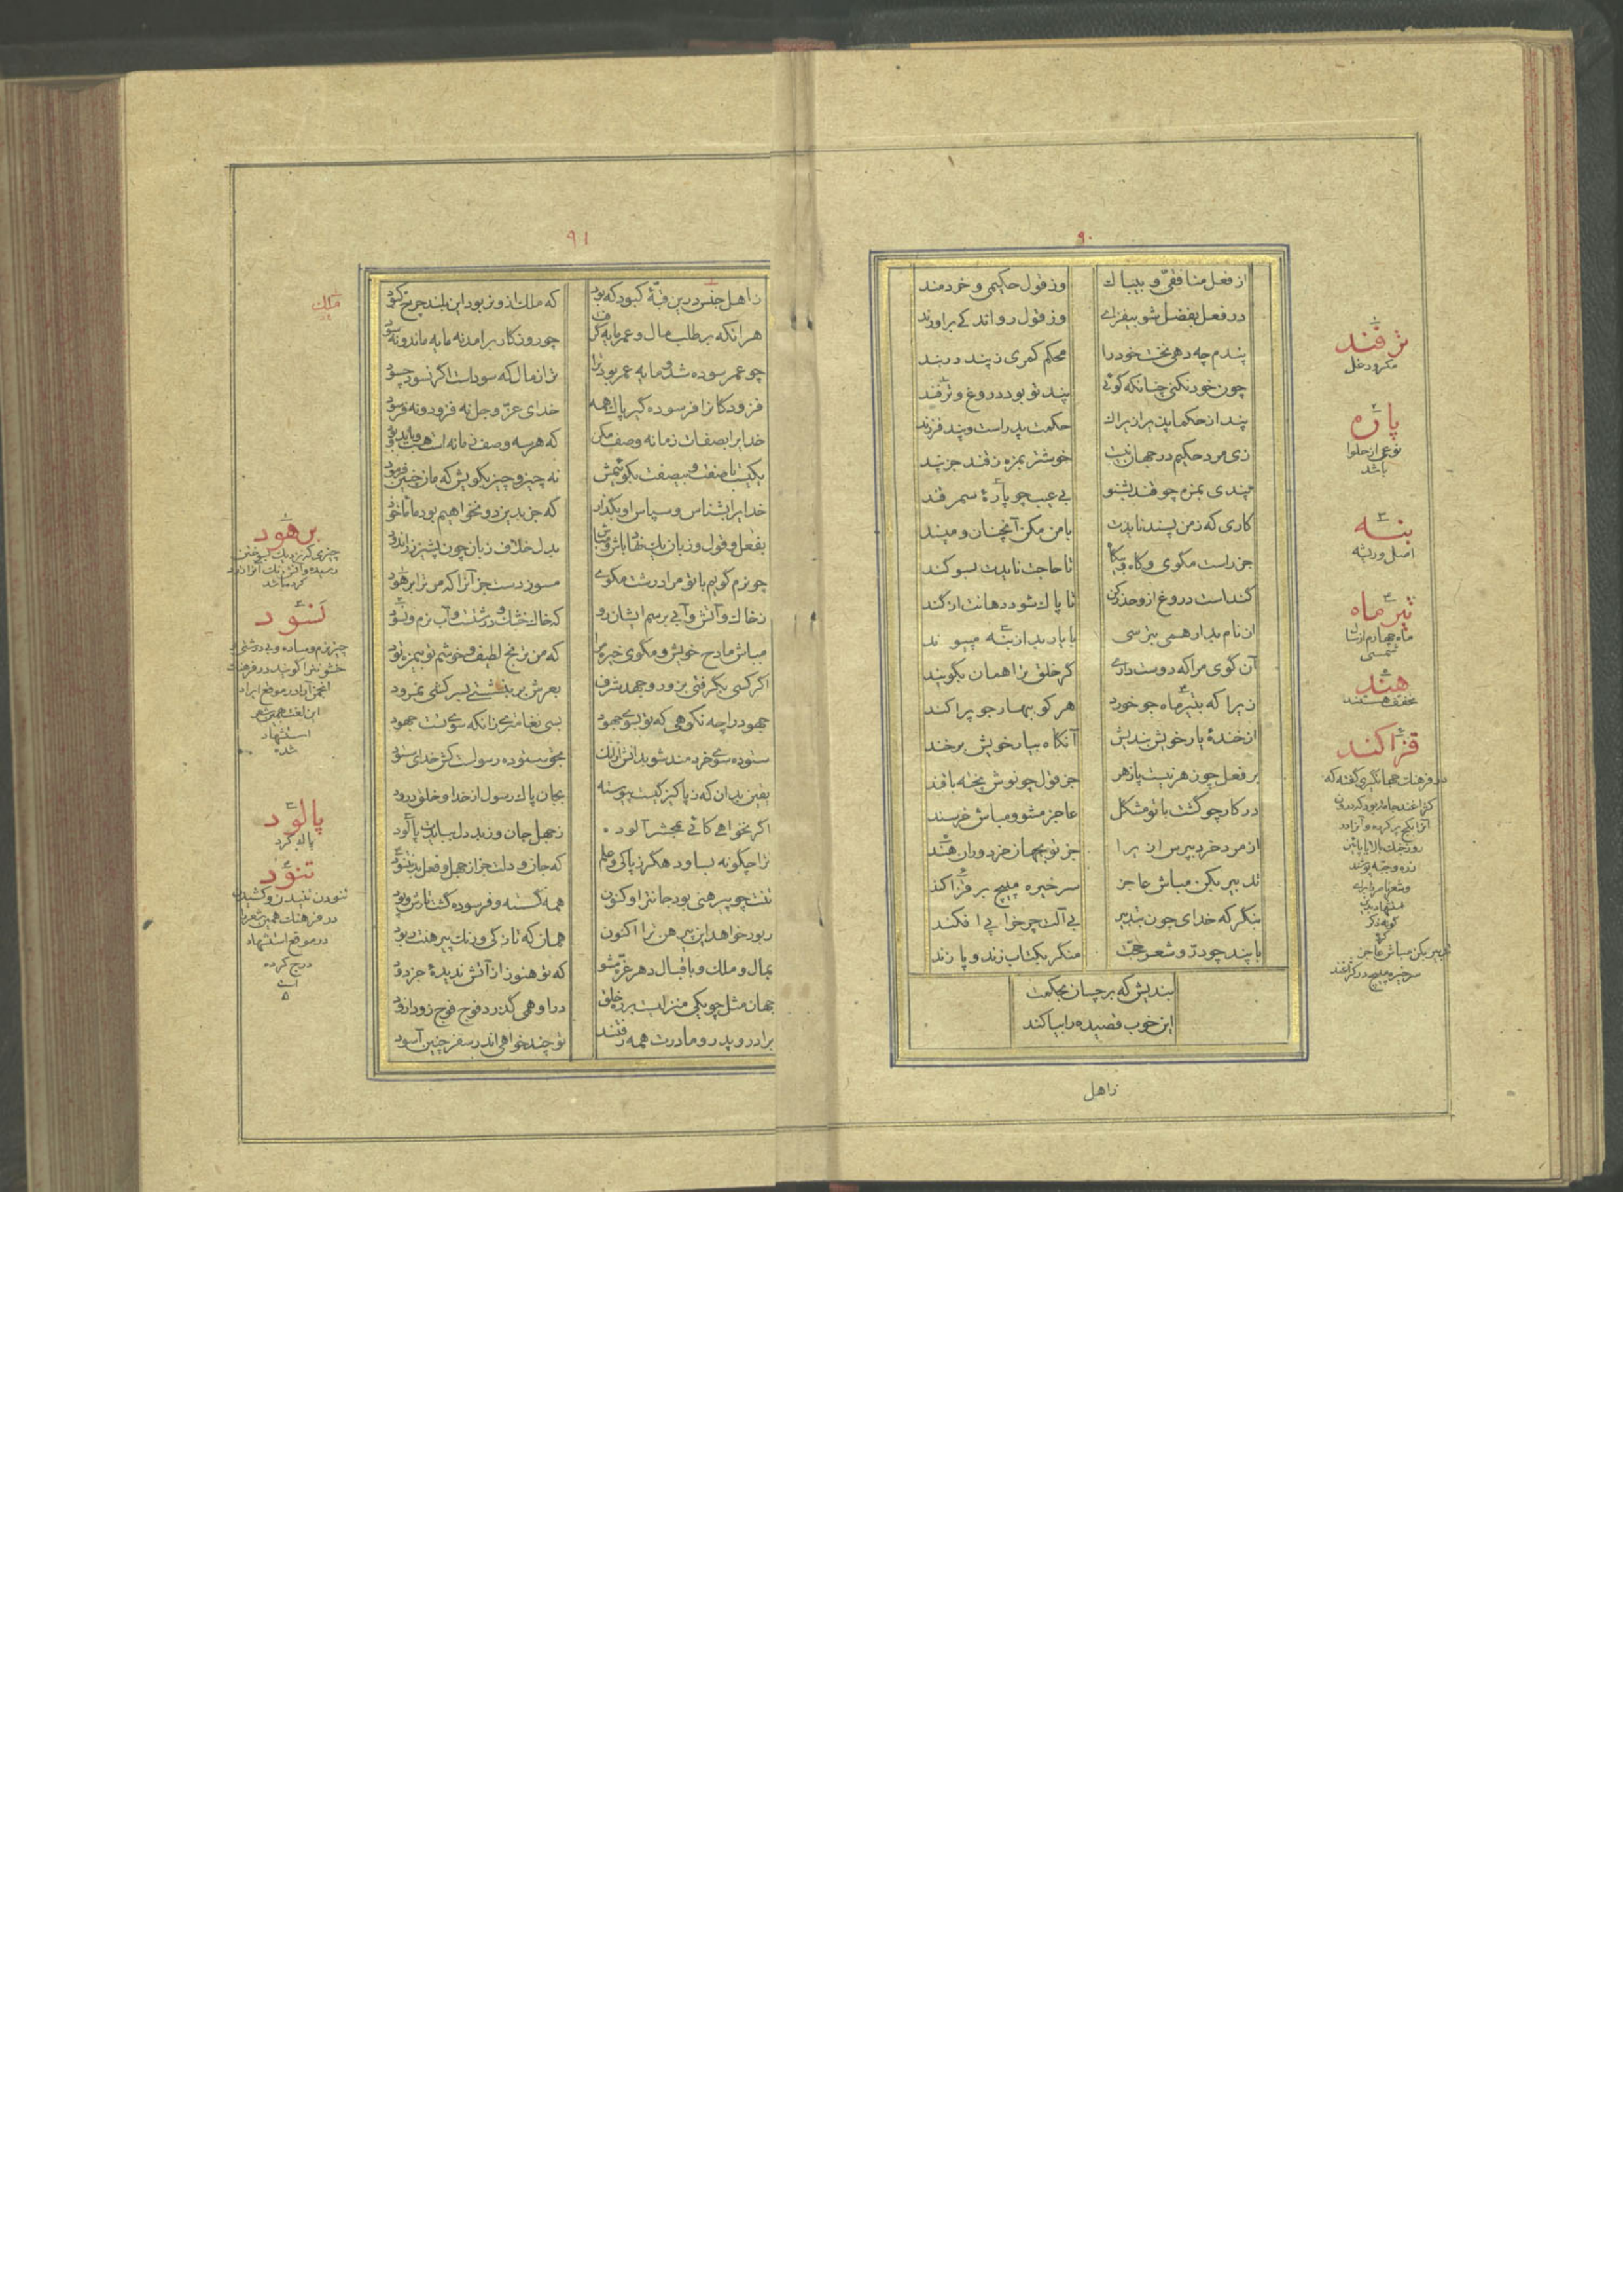 ۹۰
از فعل منافقی و بیباک
وز قول حکیمی و خردمند
در فعل بفضل شو بیفزای
وز قول رواند کی براورند
پندم چه دهی نخست خود را
محکم کمری ز پند در بند
چون خود نکنی چنانکه گوئی
پند تو بود دروغ و ترفند
پند از حکما پذیر ازیراک
حکمت پدر است و پند فرزند
زی مرد حکیم در جهان نیست
خوشتر بمزه ز قند جز پند
پندی بمزه چو قند بشنو
بی عیب چو پارهٔ سمرقند
کاری که ز من پسند نایدت
با من مکن آنچنان و مپسند
جز راست مگوی گاه و بیگاه
تا حاجت نایدت بسوگند
گنداست دروغ ازو حذر کن
تا پاک شود دهانت از گند
از نام بد ار همی بترسی
با یار بد از بنه مپیوند
آن گوی مرا که دوست داری
گر خلق ترا همان بگویند
زیرا که بتیر ماه جو خورد
هر کو ببهار جو پراکند
از خندهٔ یار خویش بندیش
آنگاه بیار خویش برخند
بر فعل چون هر نیست پازهر
جز قول چو نوش پخته با قند
در کار چو گشت با تو مشکل
عاجز مشو و مباش خرسند
از مرد خرد بپرس ازیرا
جز تو بجهان خردوران هند
تدبیر بکن مباش عاجز
سر خیره مپیچ بر قزاکند
بنگر که خدای چون بتدبیر
بی آلت چرخ را پی افکند
با پند چو در و شعر حجت
منگر بکتاب زند و پازند
بندیش که بر چسان بحکمت
این خوب قصیده را بیاکند
زاهل
ترفند
مکر و دغل
پاره
نوعی از حلوا
باشد
بنه
اصل و ریشه
تیر ماه
ماه چهارم از سال
شمسی
هند
مخفف هستند
قزاکند
در فرهنگ جهانگیری گفته که
تدبیر بکن مباش عاجز
سر خیره مپیچ در کژاغند
۹۱
ز اهل جنس درین قبهٔ کبود که بود
که ملک ازو نربود این بلند چرخ کبود
هرانکه بر طلب مال و عمر مایه گرفت
چو روزگار برامد نه مایه ماند و نه سود
چو عمر سوده شد و مایه عمر بود ترا
ترا ز مال که سود است اگر نسود چسود
فزودگان را فرسوده گیر پاک همه
خدای عز و جل نه فزود و نه فرسود
خدایرا بصفات زمانه وصف مکن
که هرسه وصف زمانه است هست و باید و بود
یکیست با صفت و بیصفت نگوئیمش
نه چیز و چیز بگویش که مان چنین فرمود
خدایرا بشناس و سپاس او بگذار
که جز بدین دو نخواهیم بود ما ماخوذ
بفعل و قول و زبان یک نهاد باش و مباش
بدل خلاف زبان چون پشیز زراندود
چو نرم گویم با تو مرا درشت مگوی
مسوز دست جز آنرا که مر ترا برهود
ز خاک و آتش و آبی برسم ایشان رو
که خاک خشک و درشتست و آب نرم و نسود
مباش مادح خویش و مگوی خیره مرا
که من ترنج لطیف و خوشم تو بیمزه تود
اگر کسی بگرفتی بزور و جهد شرف
بعرش بر بنشستی بسرکشی نمرود
جهود را چه نکوهی که تو بسوی جهود
بسی نفایه‌تری زانکه سوی تست جهود
ستوده سوی خردمند شو بدانش ازانک
بحق ستوده رسولست کش خدای ستود
یقین بدان که ز پاکیزگیست پیوسته
بجان پاک رسول از خدا و خلق درود
اگر نخواهی کائی بمحشر آلود
ز جهل جان و ز بد دل ببایدت پالود
ترا چگونه بساود هگرز پاکی و علم
که جان و دلت جز از جهل و فعل بد نبسود
تنت چو پیرهنی بود جانترا و کنون
همه گسسته و فرسوده گشت تارش و پود
ربود خواهد این پیرهن ترا اکنون
همان که تازگی و رنگ پیرهنت ربود
بمال و ملک و باقبال دهر غره مشو
که تو هنوز از آتش ندیدهٔ جز دود
جهان مثل چو یکی منزلست بر ره خلق
درا و همی گذرد فوج فوج زودازود
برادر و پدر و مادرت همه رفتند
تو چند خواهی اندر سفر چنین آسود
ملک
برهود
نسود
چیز نرم و ساده و بی درشتی و
خشونترا گویند در فرهنگ
انجمن آرا در موقع ایراد
این لغت همین شعر
استشهاد
شده
پالود
پاک کرد
تنود
تنودن تنیدن و کشیدن
در فرهنگ همین شعر را
در موقع استشهاد
درج کرده
است